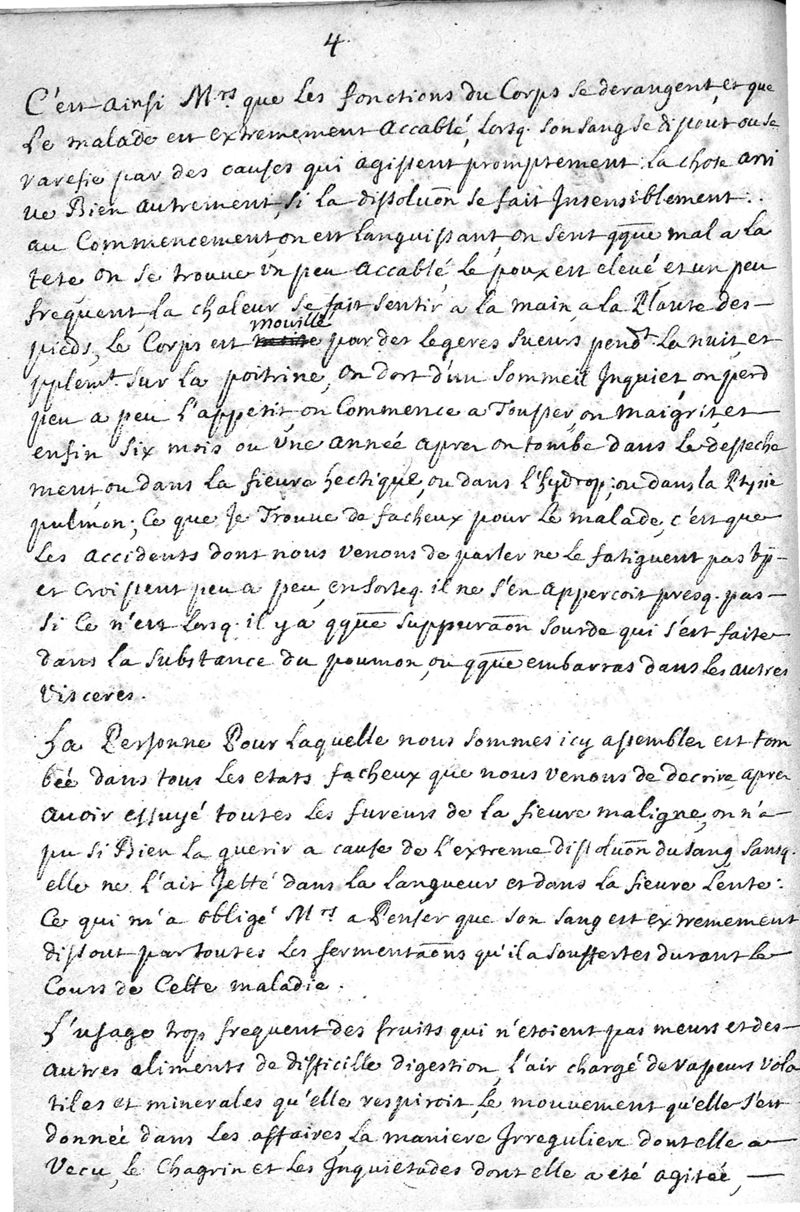 4.
C'est ainsi Mrs que les fonctions du Corps se derangent, et que
le malade est extremement accablé, Lorsq. son sang se dissout ou se
rarefie par des causes qui agissent promptement. la chose arri
ve Bien autrement, si la dissoluōn se fait Insensiblement:.
au Commencement, on est languissant, on sent qq̄ue mal a la
tete on se trouve un peu accablé, le poux est elevé, et un peu
frequent, la chaleur se fait sentir a la main, a la Plante des-
pieds, le Corps est mouillé par des legeres sueurs pendt. la nuit, et
pplemt. sur la poitrine, on dort d'un sommeil Inquiet, on perd
peu a peu l'appetit, on Commence a Tousser, on maigrit, et
enfin six mois ou une année apres on tombe dans le desseche
ment, ou dans la fievre hectique, ou dans l'hydrop; ou dans la Ptysie
pulmon; Ce que Je Trouve de facheux pour le malade, c'est que
les accidents dont nous venons de parler ne le fatiguent pas
et croissent peu a peu, ensorteq. il ne s'en appercoit presq. pas-
si Ce n'est Lorsq. il y a qq̄ue suppuraōn sourde qui s'est faite
dans la substance du poumon, ou qq̄ue embarras dans les autres
visceres.
La Personne Pour laquelle nous sommes icy assembler est tom
beé dans tous les etats facheux que nous venons de decrire, apres
avoir essuyé toutes les fureurs de la fievre maligne, on n'a
pu si Bien la guerir a cause de l'extreme dissoluōn du sang, sansq.
elle ne l'ait Jetté dans la langueur et dans la fievre lente:
Ce qui m'a obligé Mrs a Penser que son sang est extremement
dissout par toutes les fermentaōns qu'il a souffertes durant le
Cours de Cette maladie.
L'usage trop frequent des fruits qui n'etoient pas meurs et des-
autres aliments de difficille digestion, l'air chargé de vapeurs vola
tiles et minerales qu'elle respiroit, le mouvement qu'elle s'est
donneé dans les affaires, la maniere Irreguliere dont elle a-
vecu, le Chagrin et les Inquietudes dont elle a eté agitée, —